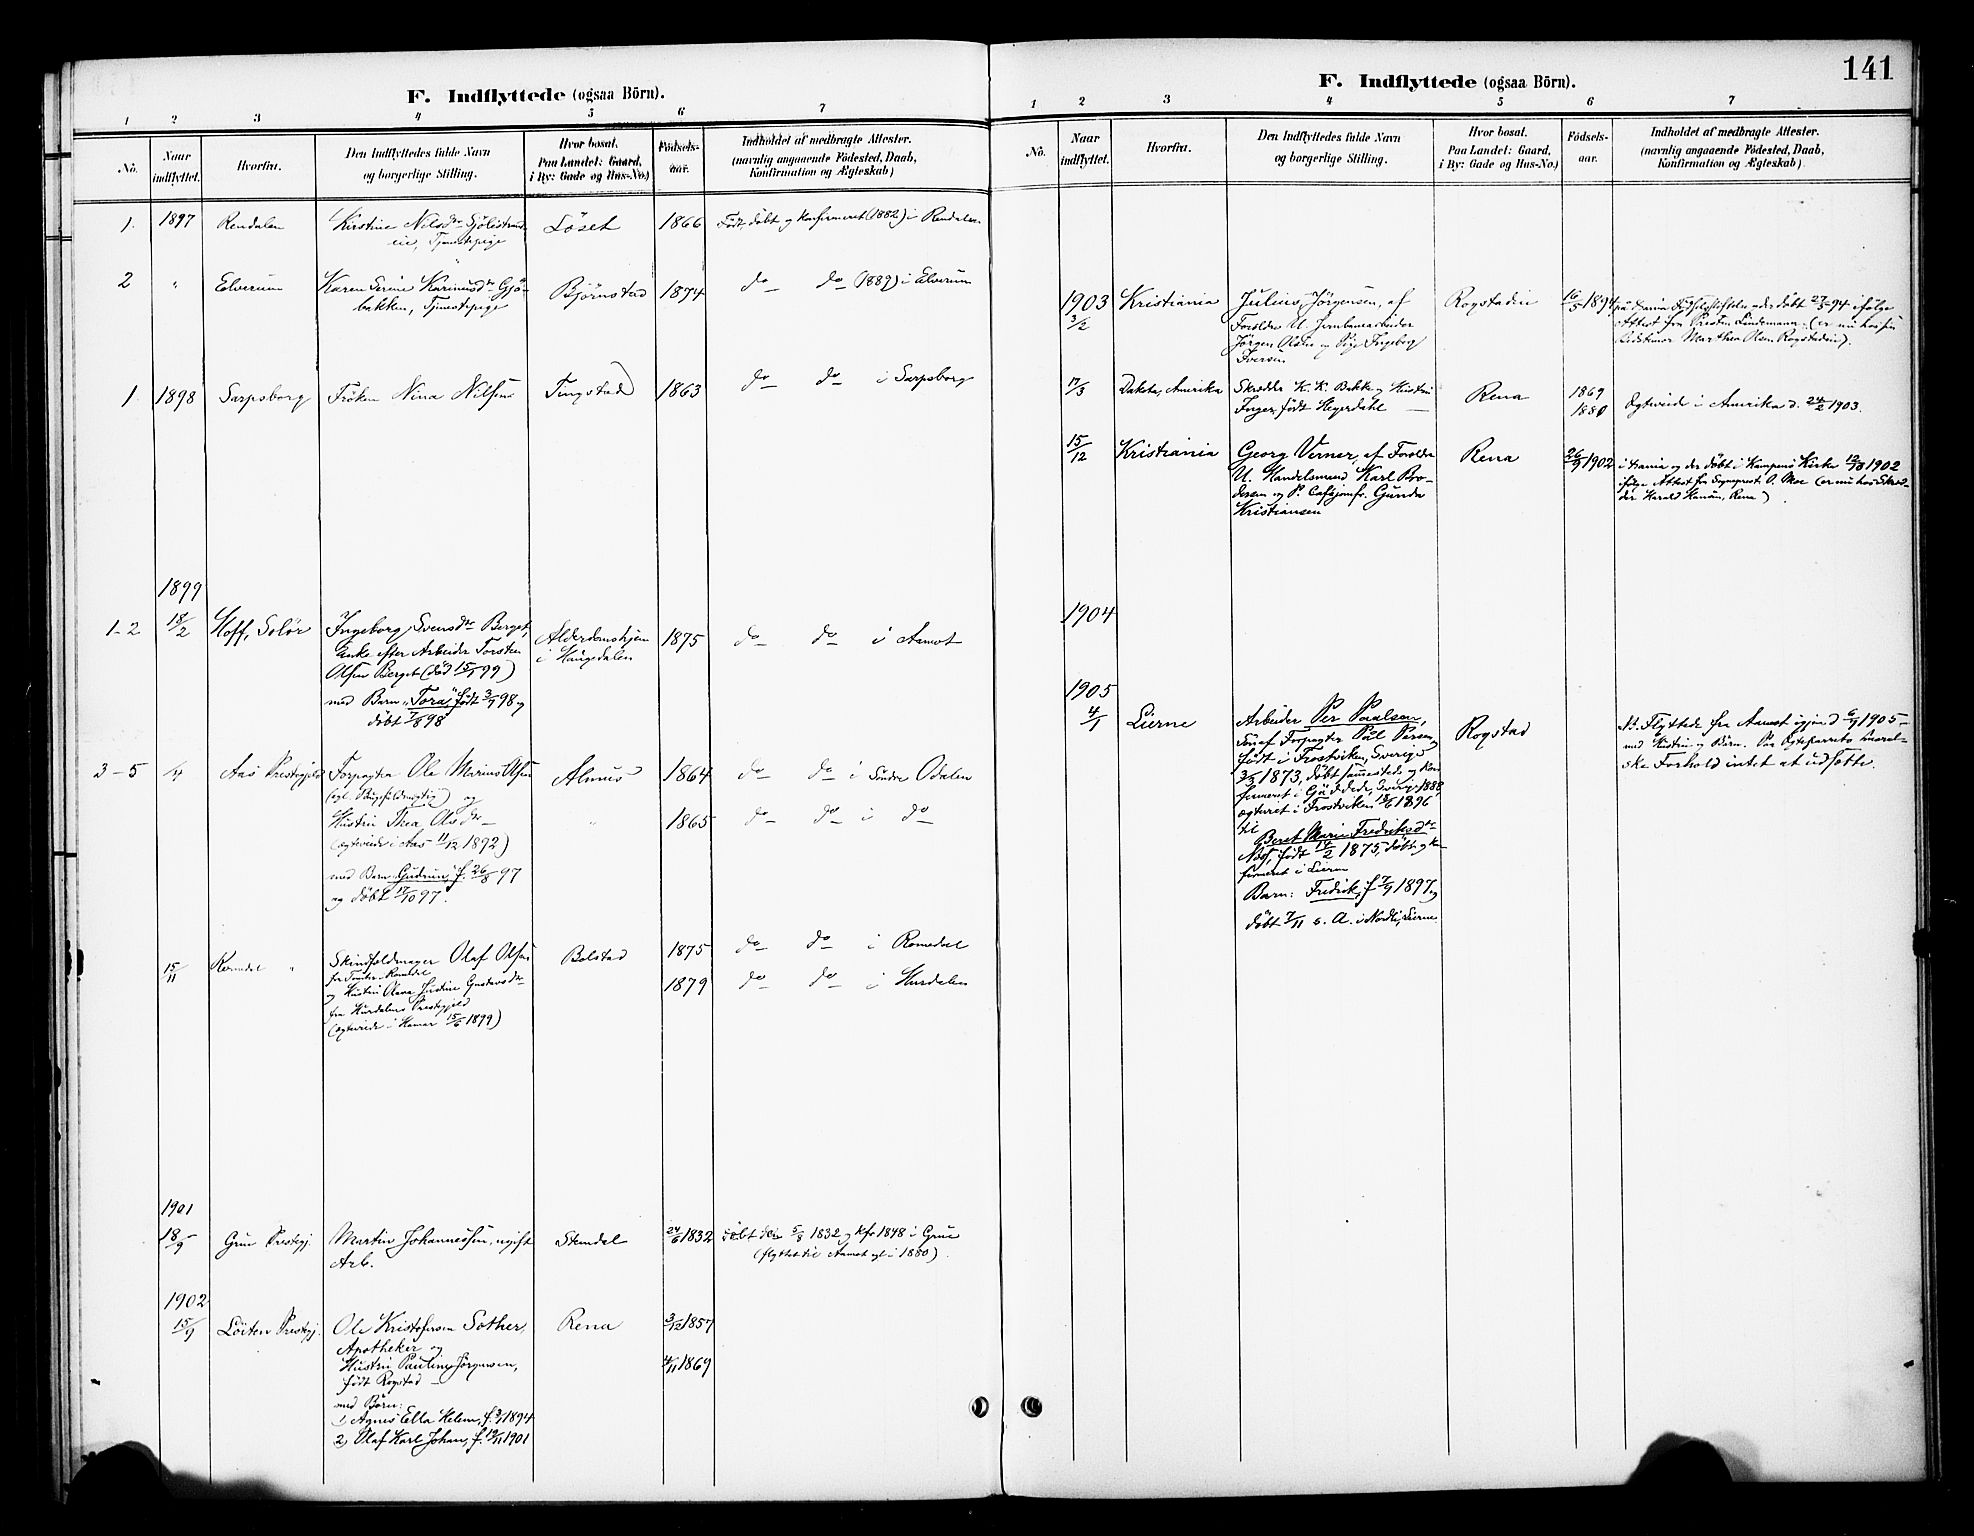 F. Indflyttede (ogsaa Börn).
1 2 3 4 5 6 7
No.
Naar
indflyttet.
Hvorfra.
Den Indflyttedes fulde Navn
og borgerlige Stilling.
Hvor bosat.
Paa Landet: Gaard,
i By: Gade og Hus-No.)
Födsels-
aar.
Indholdet af medbragte Attester.
(navnlig angaaende Födested, Daab,
Konfirmation og Ægteskab)
1. 1897 Rendalen Kirstine Nilsdtr Sjölistrand-
eie, Tjenestepige
Löset 1866 Född, döbt og konfirmeret (1882) i Rendalen
2 " Elverum Karen Serine Karinusdtr Gjö-
bakken, Tjenestepige
Björnstad 1874 do do (1889) i Elverum
1. 1898 Sarpsborg Fröken Nina Nilsen Tingstad 1863 do do i Sarpsborg
1899
1-2 18/2 Hoff, Solör Ingeborg Svensdtr Berget,
Enke efter Arbeider Torsten
Olsen Berget (död 15/1 99)
med Barn "Tora" födt 3/7 98 og
döbt 7/8 98
Alderdomshjem
i Haugedalen
1875 do do i Aamot
3-5 1/4 Aas Prestegjeld Forpagter Ole Marius Olsen
og
Hustru Thea Olsdtr
(ægteviede i Aas 11/12 1892)
med Barn Gudrun, f. 26/8 97
og döbt 17/10 97.
Alnus 1864 do do i Söndre Odalen
" 1865 do do i do
15/11 Romedal " Skindfeldmager Olaf Olsen
fra Tomter, Romedal
og Hustru Olava Justine Gustavsdtr
fra Hurdalens Prestegjeld
(ægteviede i Hamar 15/6 1899)
Bolstad 1875 do do i Romedal
1879 do do i Hurdalen
1901
18/9 Grue Prestegj. Martin Johannessen, ugift
Arb.
Stendal 24/6 1832 döbt den 5/8 1832 og kfr 1848 i Grue
(flyttet til Aamot gl. i 1880).
1902
15/9 Löiten Prestegj. Ole Kristofersen Sother,
Apotheker og
Hustru Pauline Jörgensen,
födt Rogstad —
med Börn:
1) Agnes Ella Helene, f. 3/1 1894
2) Olaf Karl Johan, f. 19/11 1901
Rena 3/12 1857
4/11 1869
141
F. Indflyttede (ogsaa Börn).
1 2 3 4 5 6 7
No.
Naar
indflyttet.
Hvorfra.
Den Indflyttedes fulde Navn
og borgerlige Stilling.
Hvor bosat.
Paa Landet: Gaard,
i By: Gade og Hus-No.)
Födsels-
aar.
Indholdet af medbragte Attester.
(navnlig angaaende Födested, Daab,
Konfirmation og Ægteskab)
1903
3/2 Kristiania Julius Jörgensen, af
Foreldre U. Jernbanearbeider
Jörgen Olsen og Pige Ingeborg
Iversen
Rogstadie 16/5 1894 på Kr.ania Födselsstiftelse og der döbt 27/5 94 ifölge
Attest fra Presten Lindemann. (er nu hos sin
Bedstemor Marthea Olsen Rogstadeie).
17/3 Dakota, Amerika Skrædder K. K. Bakke og Hustru
Inger, födt Heyerdahl —
Rena 1869
1880
Ægteviede i Amerika d. 24/2 1903.
15/12 Kristiania Georg Verner, af Foreldre
U. Handelsmand Karl Bro-
dersen og P. Cafejomfr. Gunda
Kristiansen
Rena 26/9 1902 i Kr.ania og der döbt i Kampens Kirke 12/10 1902
ifölge Attest fra Sogneprest O. Moe (er nu hos Skræd-
der Harald Hansen, Rena)
1904
1905
4/1 Lierne Arbeider Per Paalsen,
Sön af Forpagter Pål Persen,
födt i Frostviken, Sverige
3/3 1873, döbt sammesteds og kon
firmeret i Gäddede, Sverige 1888,
ægteviet i Frostviken 18/6 1896
til
Beret Marie Fredriksdtr
födt 14/2 1875, döbt og kon
firmeret i Lierne
Barn: Fredrik, f 7/9 1897 og
döbt 7/11 s. A. i Nordli, Lierne
Rogstad
Nb. Flyttede fra Aamot igjen d. 6/9 1905 —
med Hustru og Börn. Paa Ægteparrets moral-
ske Forhold intet at udsætte.